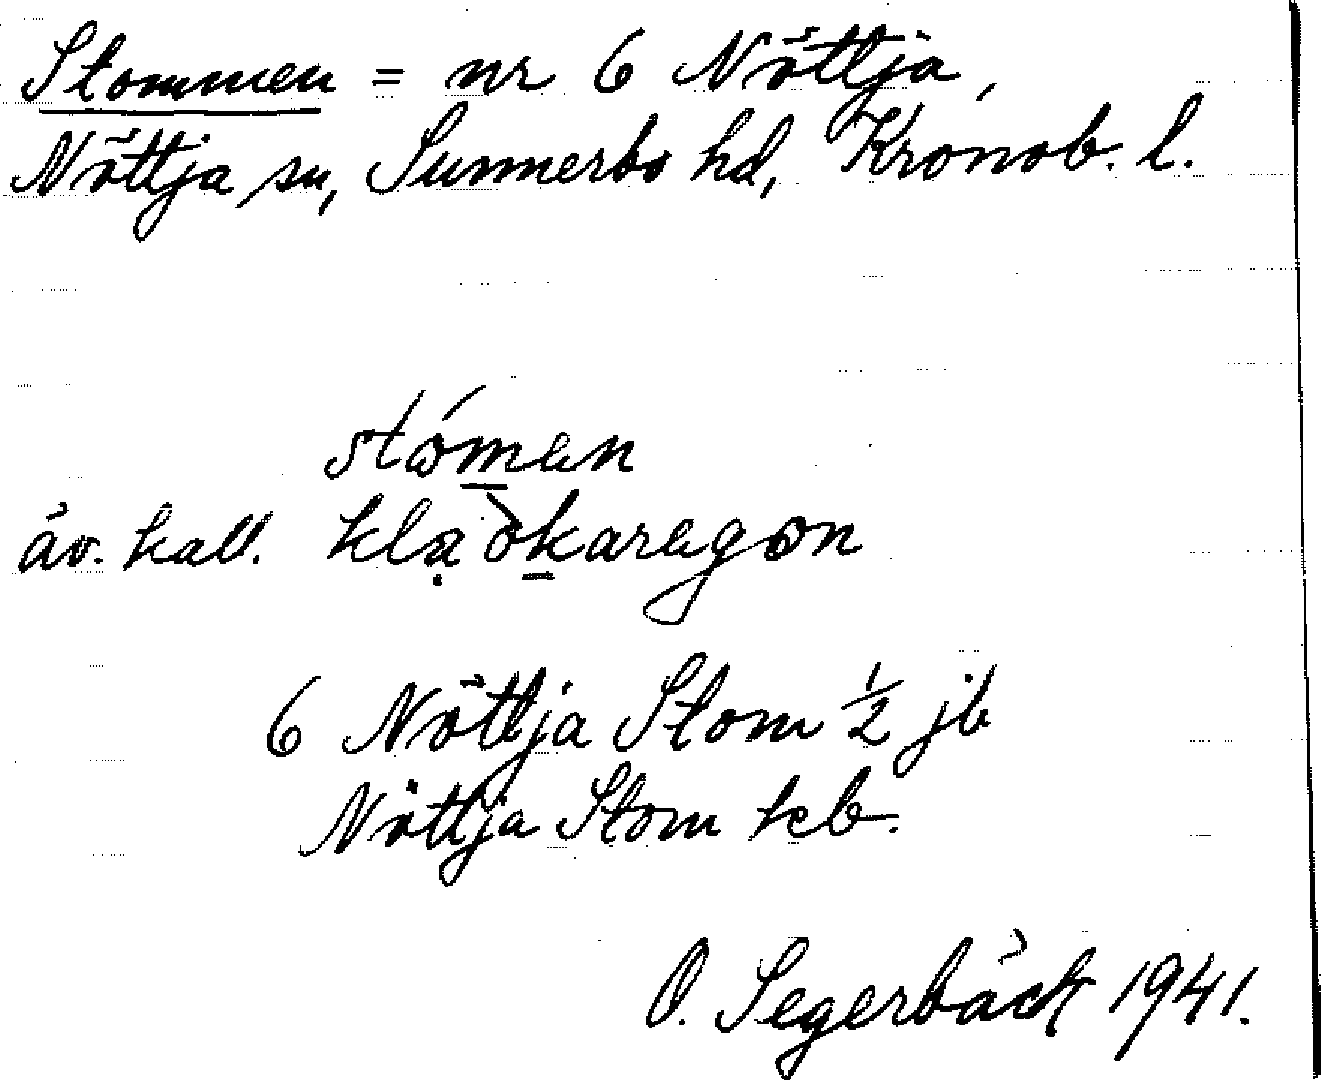 Stommen = nr 6 Nöttja,
Nöttja sn, Sunnerbo hd, Kronob. l.
stómen
äv. kall. klạ̀okaregon
6 Nöttja Stom ½ jb
Nöttja Stom keb.
O. Segerbäck 1941.